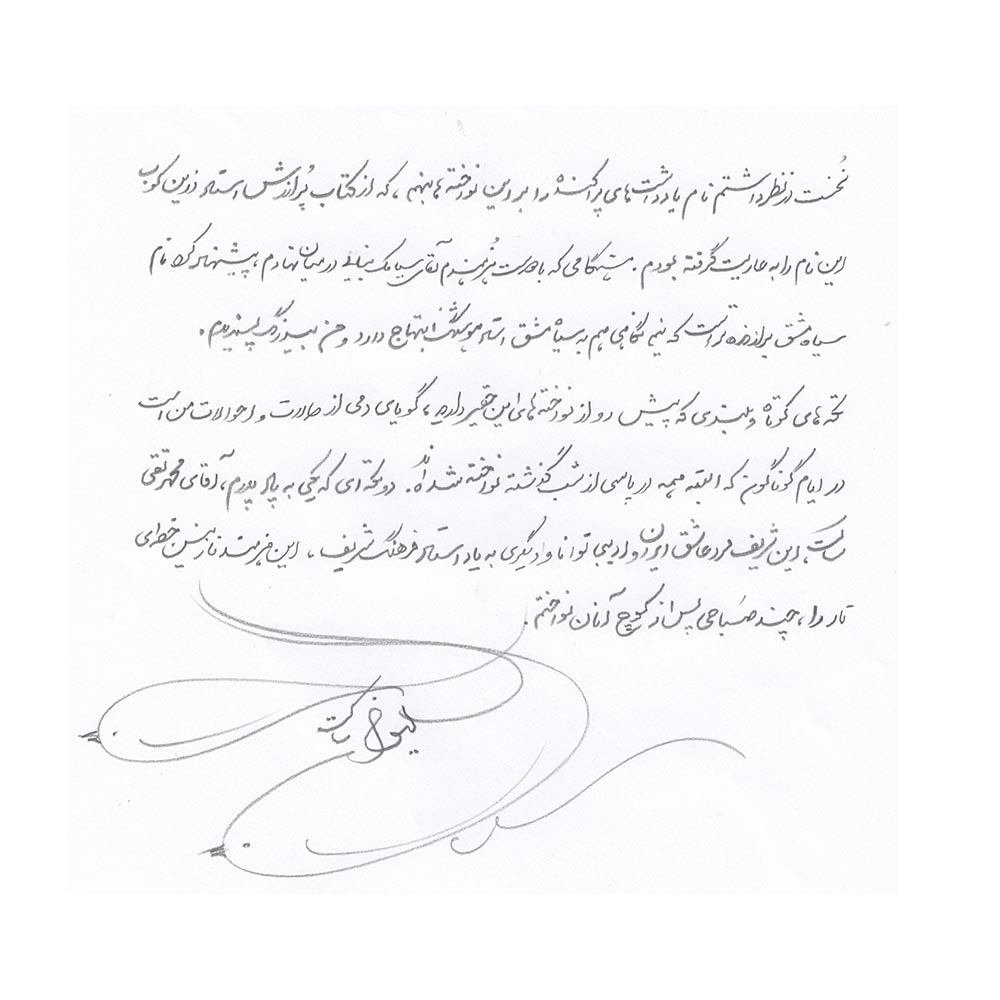 نُخست در نظر داشتم نام یادداشت‌های پراکنده را بر این نواخته‌ها بنهم، که از کتاب پُرارزش استاد زرین کوب
این نام را به عاریت گرفته بودم. هنگامی که با دوست هُنرمندم آقای سیامک بنایی در میان نهادم، پیشنهاد کرد نام
سیاه مشق برازنده‌تر است که نیم نگاهی هم به سیاه مشق استاد هوشنگ ابتهاج دارد و من نیز پسندیدم.
تکه‌های کوتاه و بلندی که پیش رو از نواخته‌های این حقیر دارید، گویای دمی از حالات و احوالات من است
در ایام گوناگون که البته همه در پاسی از شب گذشته نواخته شده‌اند. دو تکه‌ای که یکی به یاد پدرم، آقای محمدتقی
این شریف مرد عاشق ایران و ادیبی توانا و دیگری به یاد استاد فرهنگ شریف، این هنرمند نازنین خطه‌ی
تار را، چند صَباحی پس از کوچ آنان نواختم.